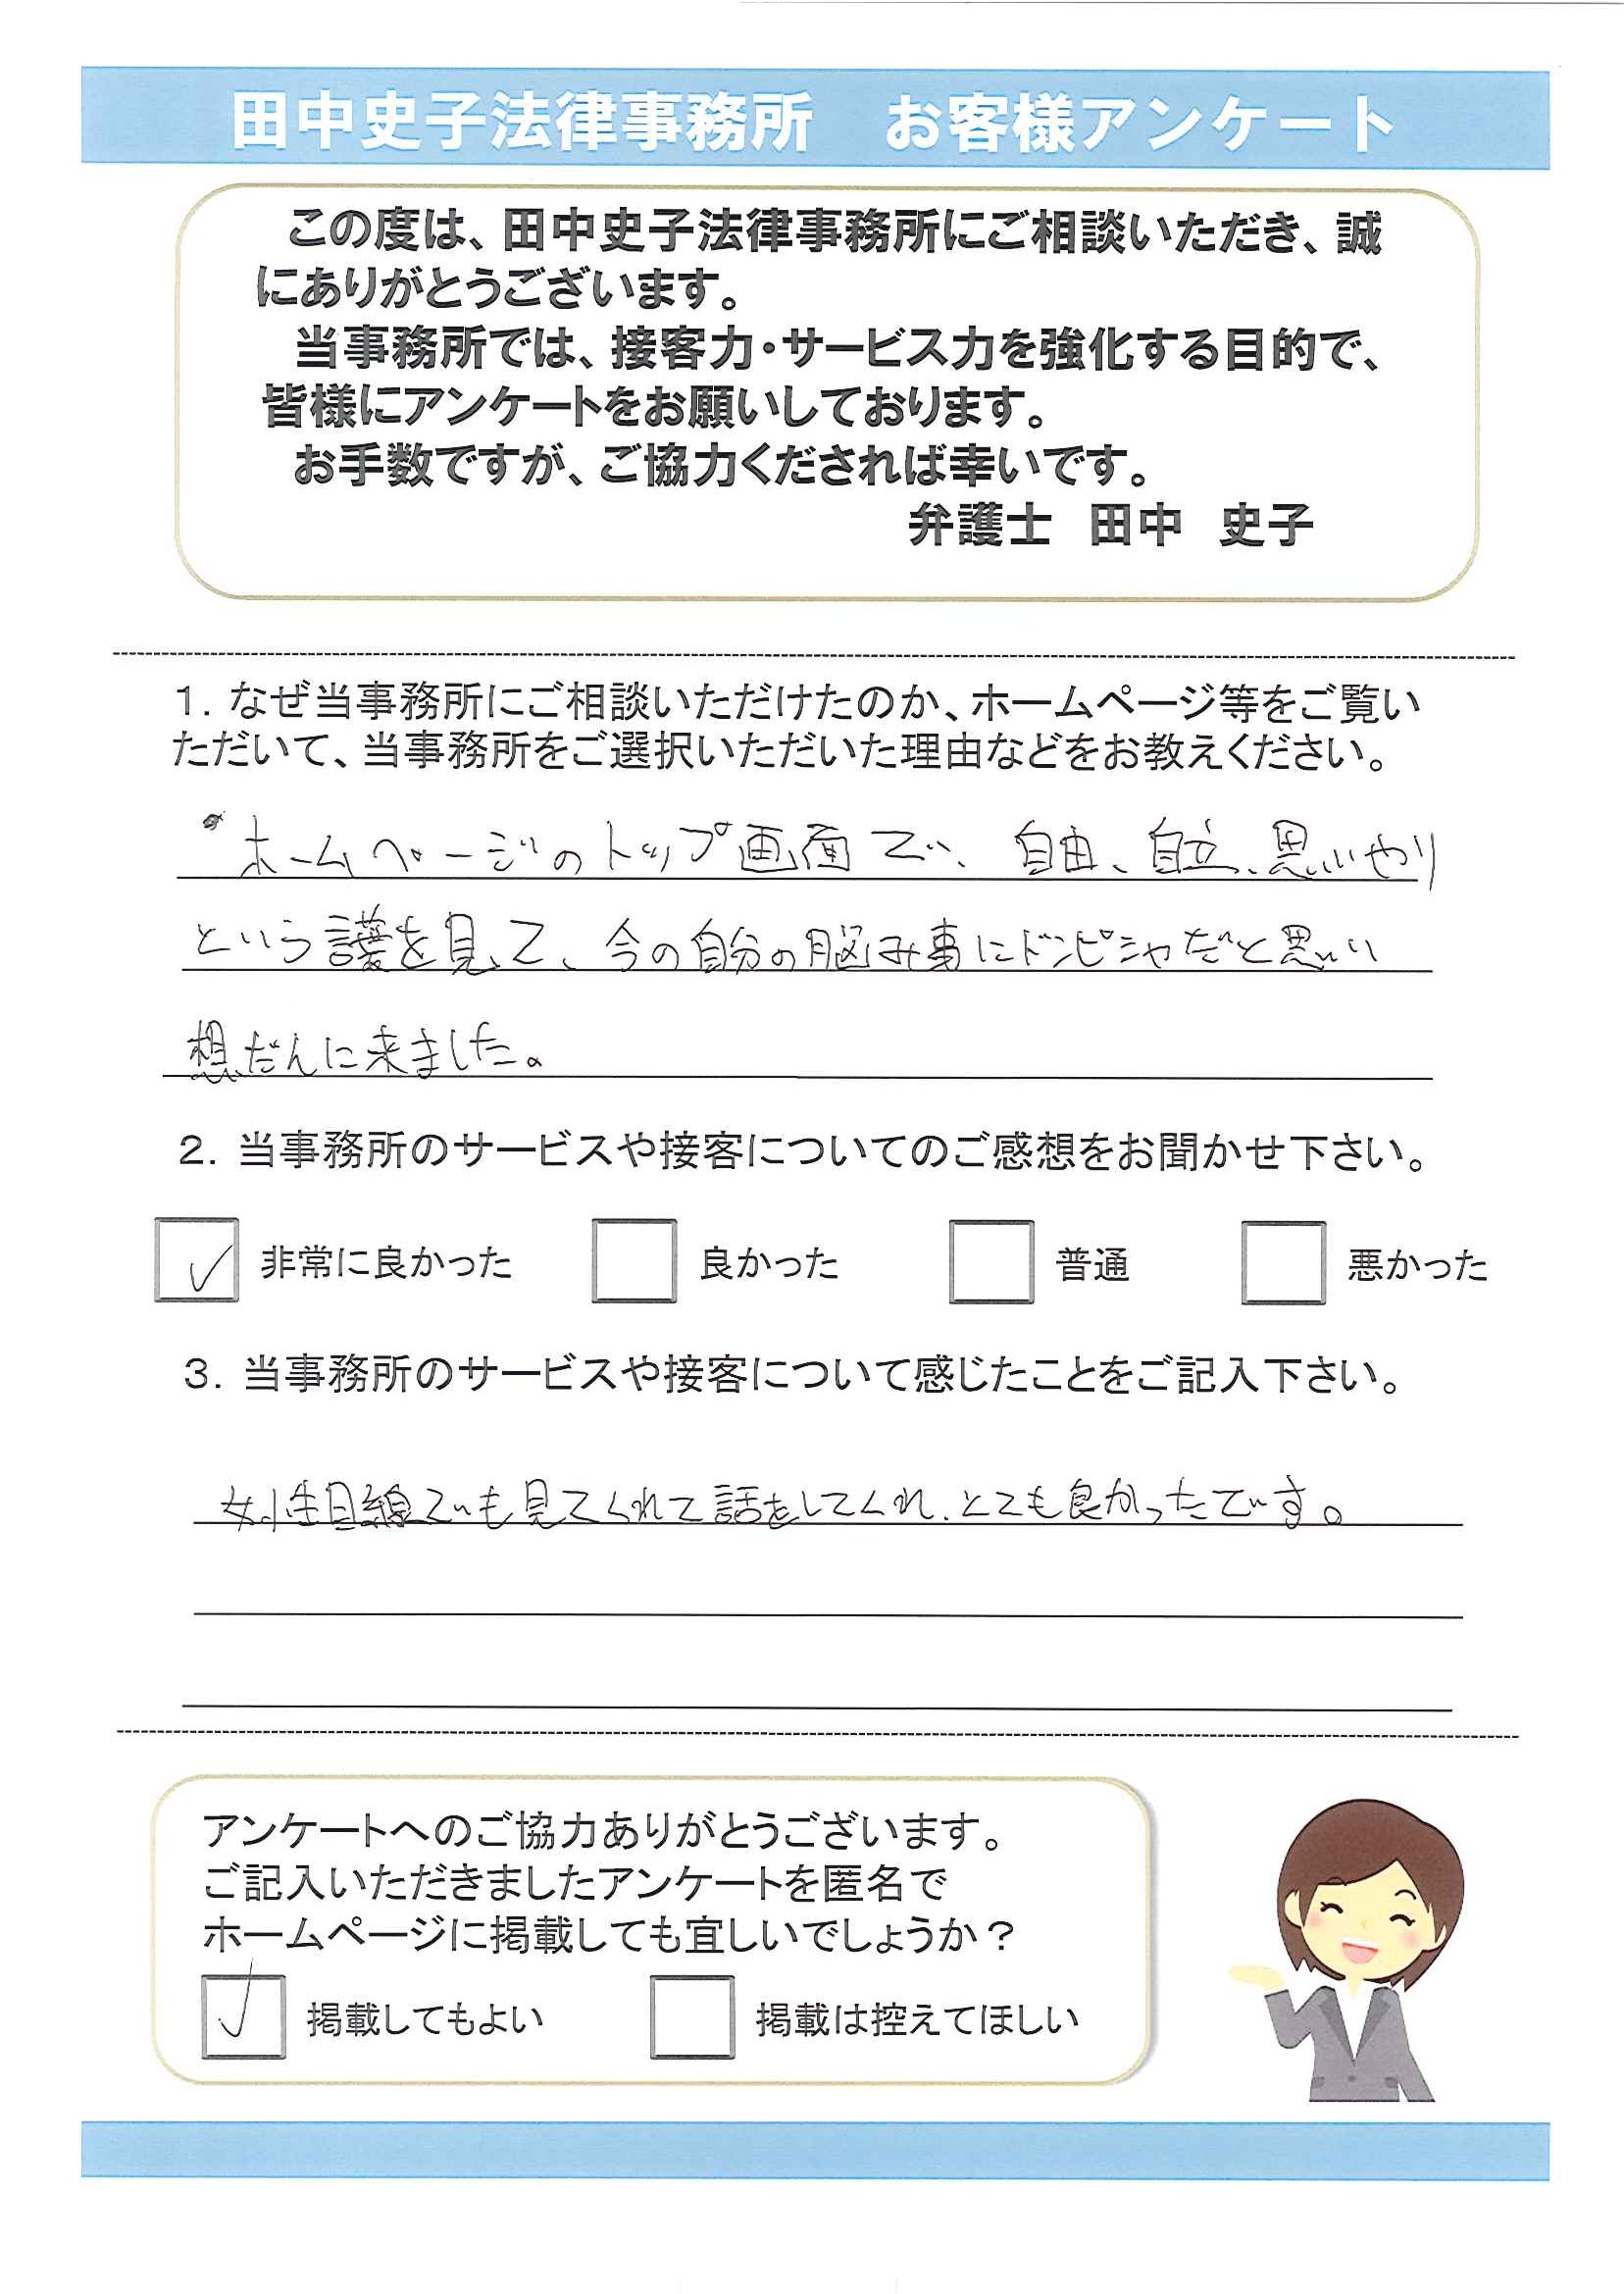 田中史子法律事務所　お客様アンケート
この度は、田中史子法律事務所にご相談いただき、誠
にありがとうございます。
当事務所では、接客力・サービス力を強化する目的で、
皆様にアンケートをお願いしております。
お手数ですが、ご協力くだされば幸いです。
弁護士　田中　史子
1. なぜ当事務所にご相談いただけたのか、ホームページ等をご覧い
ただいて、当事務所をご選択いただいた理由などをお教えください。
ホームページのトップ画面で、自由、自立、思いやり
という護を見て、今の自分の脳み事にドンピシャだと思い
想だんに来ました。
2. 当事務所のサービスや接客についてのご感想をお聞かせ下さい。
✓ 非常に良かった　良かった　普通　悪かった
3. 当事務所のサービスや接客について感じたことをご記入下さい。
女性目線でも見てくれて話をしてくれ、とても良かったです。
アンケートへのご協力ありがとうございます。
ご記入いただきましたアンケートを匿名で
ホームページに掲載しても宜しいでしょうか？
✓ 掲載してもよい　掲載は控えてほしい